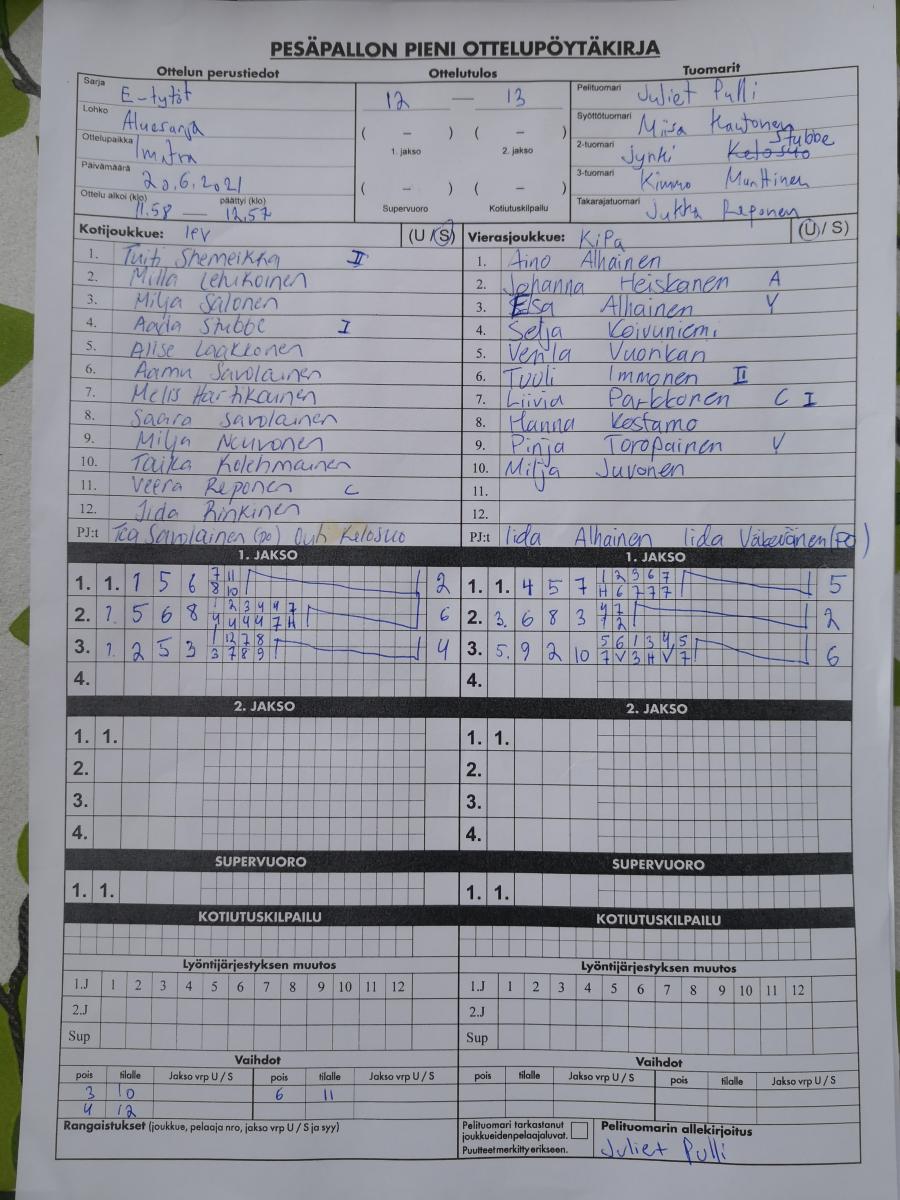 PESÄPALLON PIENI OTTELUPÖYTÄKIRJA
Ottelun perustiedot Ottelutulos Tuomarit
Sarja E-tytöt
Lohko Aluesarja
Ottelupaikka Imatra
Päivämäärä 20.6.2021
Ottelu alkoi (klo) päättyi (klo)
11.58 — 12.57
12 — 13
( – ) ( – )
1. jakso 2. jakso
( – ) ( – )
Supervuoro Kotiutuskilpailu
Pelituomari Juliet Pulli
Syöttötuomari Miisa Hautonen
Stubbe
2-tuomari Jyrki Kelosuo
3-tuomari Kimmo Munttinen
Takarajatuomari Jukka Reponen
Kotijoukkue: Iev (U / S)
1. Tuiti Shemeikka II
2. Milla Lehikoinen
3. Milja Salonen
4. Aada Stubbe I
5. Alise Laakkonen
6. Aamu Savolainen
7. Melis Hartikainen
8. Saara Savolainen
9. Milja Neuvonen
10. Taika Kolehmainen
11. Veera Reponen C
12. Iida Rinkinen
PJ:t Tea Savolainen (po) Outi Kelosuo
Vierasjoukkue: KiPa (U / S)
1. Aino Alhainen
2. Johanna Heiskanen A
3. Elsa Alhainen V
4. Selja Koivuniemi
5. Venla Vuorikan
6. Tuuli Immonen II
7. Liivia Parkkonen C I
8. Hanna Kostamo
9. Pinja Toropainen V
10. Milja Juvonen
11.
12.
PJ:t Iida Alhainen Iida Väkeväinen (po)
1. JAKSO 1. JAKSO
1. 1. 1 5 6 7 11 2
8 10
2. 1. 5 6 8 1 2 3 4 4 7 6
4 4 4 4 7 H
3. 1. 2 5 3 1 12 7 8 4
3 7 8 9
4.
1. 1. 4 5 7 1 2 3 6 7 5
H 6 7 7 7
2. 3. 6 8 3 4 7 2
1 2
3. 5. 9 2 10 5 6 1 3 4 5 6
7 V 3 H V 7
4.
2. JAKSO 2. JAKSO
1. 1. 1. 1.
2. 2.
3. 3.
4. 4.
SUPERVUORO SUPERVUORO
1. 1. 1. 1.
KOTIUTUSKILPAILU KOTIUTUSKILPAILU
Lyöntijärjestyksen muutos Lyöntijärjestyksen muutos
1.J 1 2 3 4 5 6 7 8 9 10 11 12 1.J 1 2 3 4 5 6 7 8 9 10 11 12
2.J 2.J
Sup Sup
Vaihdot Vaihdot
pois tilalle Jakso vrp U / S pois tilalle Jakso vrp U / S pois tilalle Jakso vrp U / S pois tilalle Jakso vrp U / S
3 10 6 11
4 12
Rangaistukset (joukkue, pelaaja nro, jakso vrp U / S ja syy)
Pelituomari tarkastanut
joukkueidenpelaajaluvat.
Puutteet merkitty erikseen.
Pelituomarin allekirjoitus
Juliet Pulli